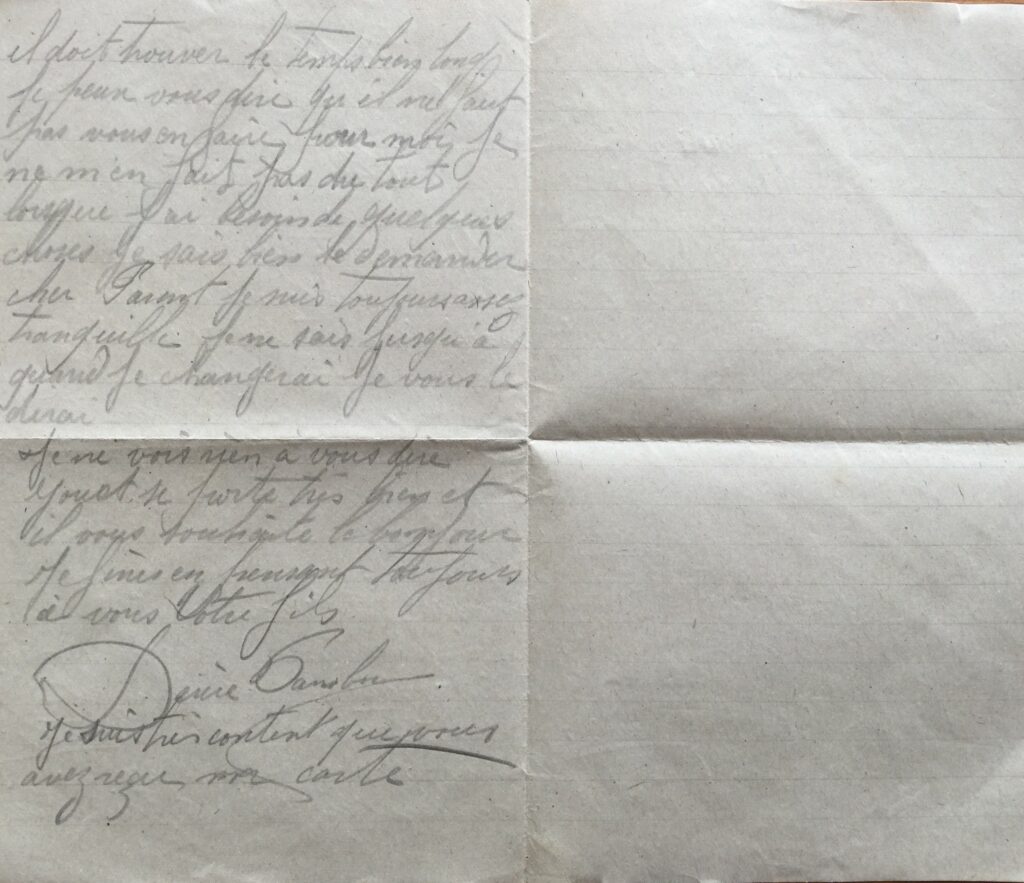 il doit trouver le temps bien long
Je peux vous dire qu il ne faut
pas vous en faire pour moi, Je
ne m'en fait pas du tout
lorsque J'ai besoin de quelques
choses Je sais bien le demander
cher Parent Je suis toujours assez
tranquille Je ne sais Jusqu'à
quand Je changerai Je vous le
dirai
Je ne vois rien à vous dire
se porte très bien et
il vous souhaite le bonjour
Je finis en pensant toujours
à vous Votre fils
Désiré
Je suis très content que vous
avez reçu carte